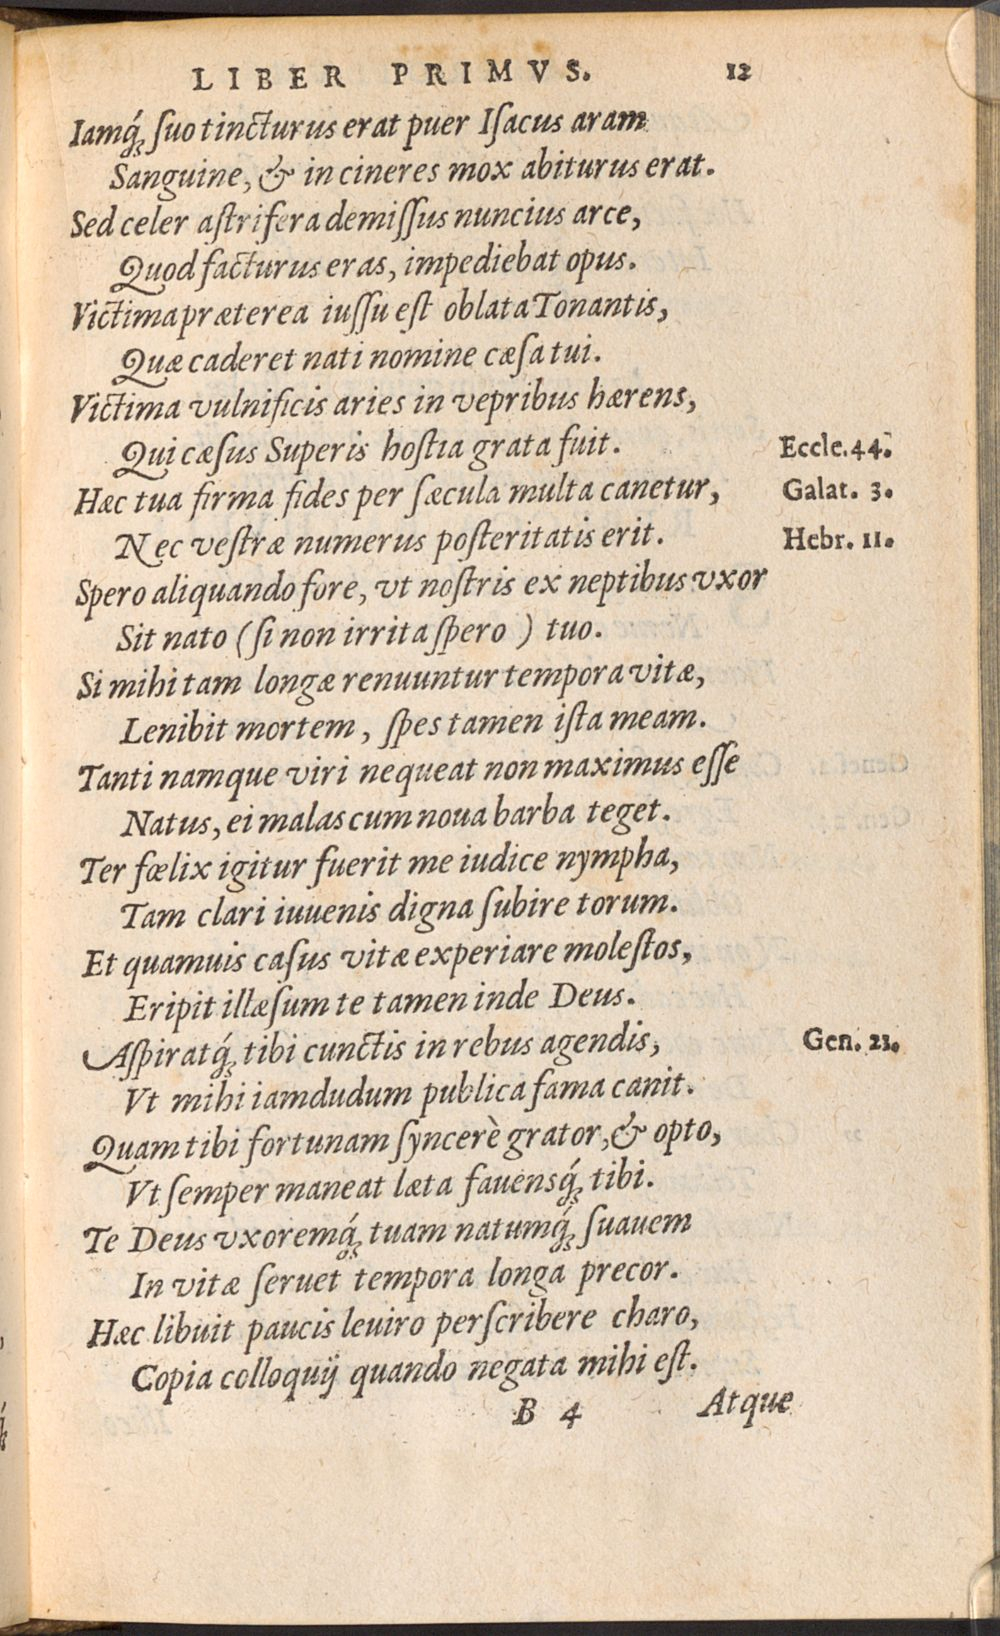 LIBER PRIMVS. 12
Iamq́ꝫ ſuo tincturus erat puer Iſacus aram
Sanguine, & in cineres mox abiturus erat.
Sed celer aſtrifera demiſſus nuncius arce,
Quod facturus eras, impediebat opus.
Victima præterea iuſſu eſt oblata Tonantis,
Quæ caderet nati nomine cæſa tui.
Victima vulnificis aries in vepribus hærens,
Qui cæſus Superis hoſtia grata fuit. Eccle. 44.
Hæc tua firma fides per ſæcula multa canetur, Galat. 3.
Nec veſtræ numerus poſteritatis erit. Hebr. 11.
Spero aliquando fore, vt noſtris ex neptibus vxor
Sit nato (ſi non irrita ſpero ) tuo.
Si mihi tam longæ renuuntur tempora vitæ,
Lenibit mortem, ſpes tamen iſta meam.
Tanti namque viri nequeat non maximus eſſe
Natus, ei malas cum noua barba teget.
Ter fœlix igitur fuerit me iudice nympha,
Tam clari iuuenis digna ſubire torum.
Et quamuis caſus vitæ experiare moleſtos,
Eripit illæſum te tamen inde Deus.
Aſpiratq́ꝫ tibi cunctis in rebus agendis, Gen. 23.
Vt mihi iamdudum publica fama canit.
Quam tibi fortunam ſyncerè grator, & opto,
Vt ſemper maneat læta fauensq́ꝫ tibi.
Te Deus vxoremq́ꝫ tuam natumq́ꝫ ſuauem
In vitæ ſeruet tempora longa precor.
Hæc libuit paucis leuiro perſcribere charo,
Copia colloquij quando negata mihi eſt.
B 4 Atque